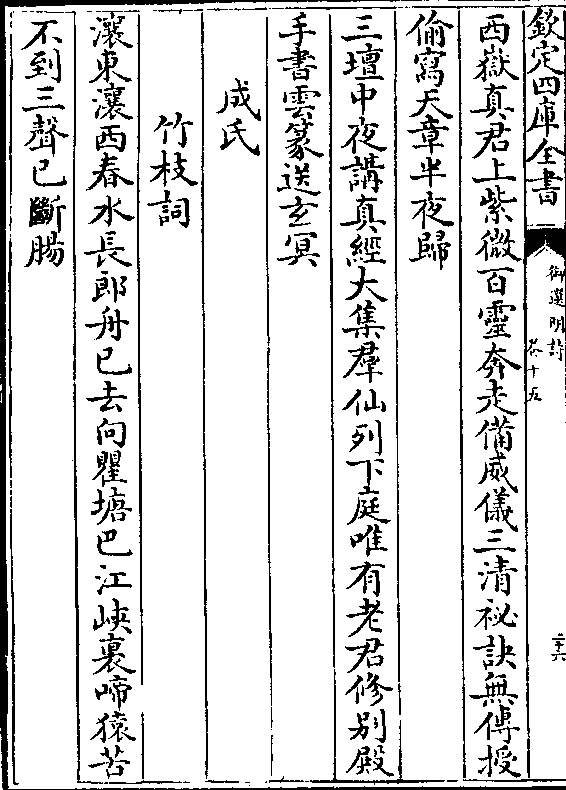 欽定四庫全書
御選明詩
卷十五
二十六
西嶽真君上紫微百靈奔走備威儀三清祕訣無傳授
偷寫天章半夜歸
三壇中夜講真經大集羣仙列下庭唯有老君修別殿
手書雲篆送玄冥
成氏
竹枝詞
瀼東瀼西春水長郎舟已去向瞿塘巴江峽裏啼猿苦
不到三聲已斷腸